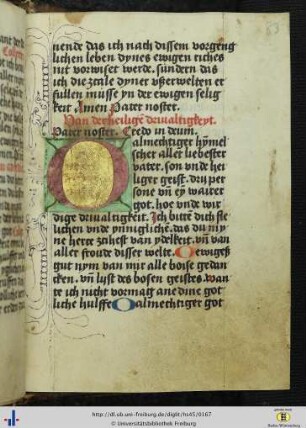 nende das ich nach dissem vorgeng
lichen leben dynes ewigen riches
nit vorwiset werde. sundern das
ich die zcale dyner vßerwelten er
fullen musse yn der ewigen selig
keit. Amen. Pater noster.
Van der heiligē drivaltigkeyt.
Pater noster. Credo in deum.
O almechtiger hȳmel
scher aller liebester
vater. son vnde her
liger geist. dry per
sone vñ ey warer
got. hoe vnde wir
dige drivaltigkeit. Ich bitte dich fle
lichen vnde ynnigliche. das du my
ne hertze zcihest van ydelkeit. vñ van
aller froude disser welte. O ewiges
gut nym van mir alle boise gedan
cken. vñ lust des bosen geistes. wan
te ich nicht vormag ane dine got
liche hulffe O almechtiger got
63
http://dl.ub.uni-freiburg.de/diglit/hs45/0167
© Universitätsbibliothek Freiburg
Baden-Württemberg